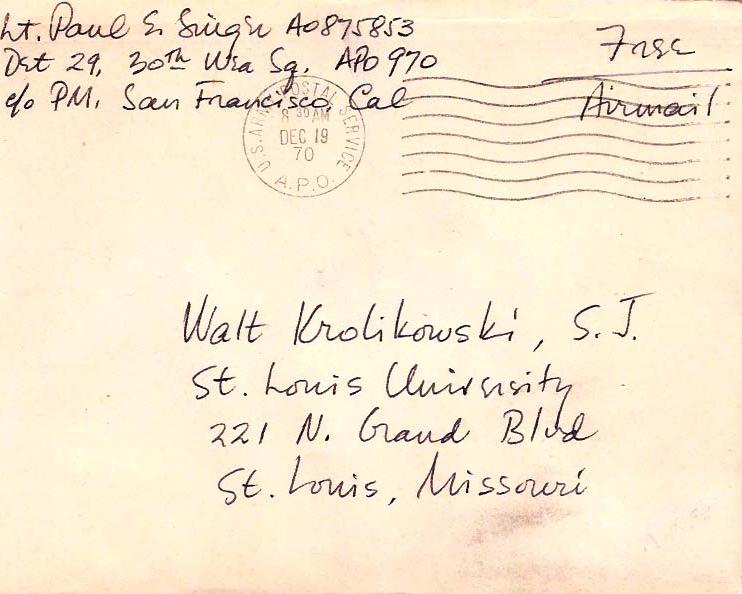 Lt. Paul E. Singer AO875853
Det 29, 30th Wea Sq. APO 970
c/o PM, San Francisco, Cal
Free
Airmail
U.S. ARMY POSTAL SERVICE
8 30 AM
DEC 19
70
A.P.O.
Walt Krolikowski, S.J.
St. Louis University
221 N. Grand Blvd
St. Louis, Missouri